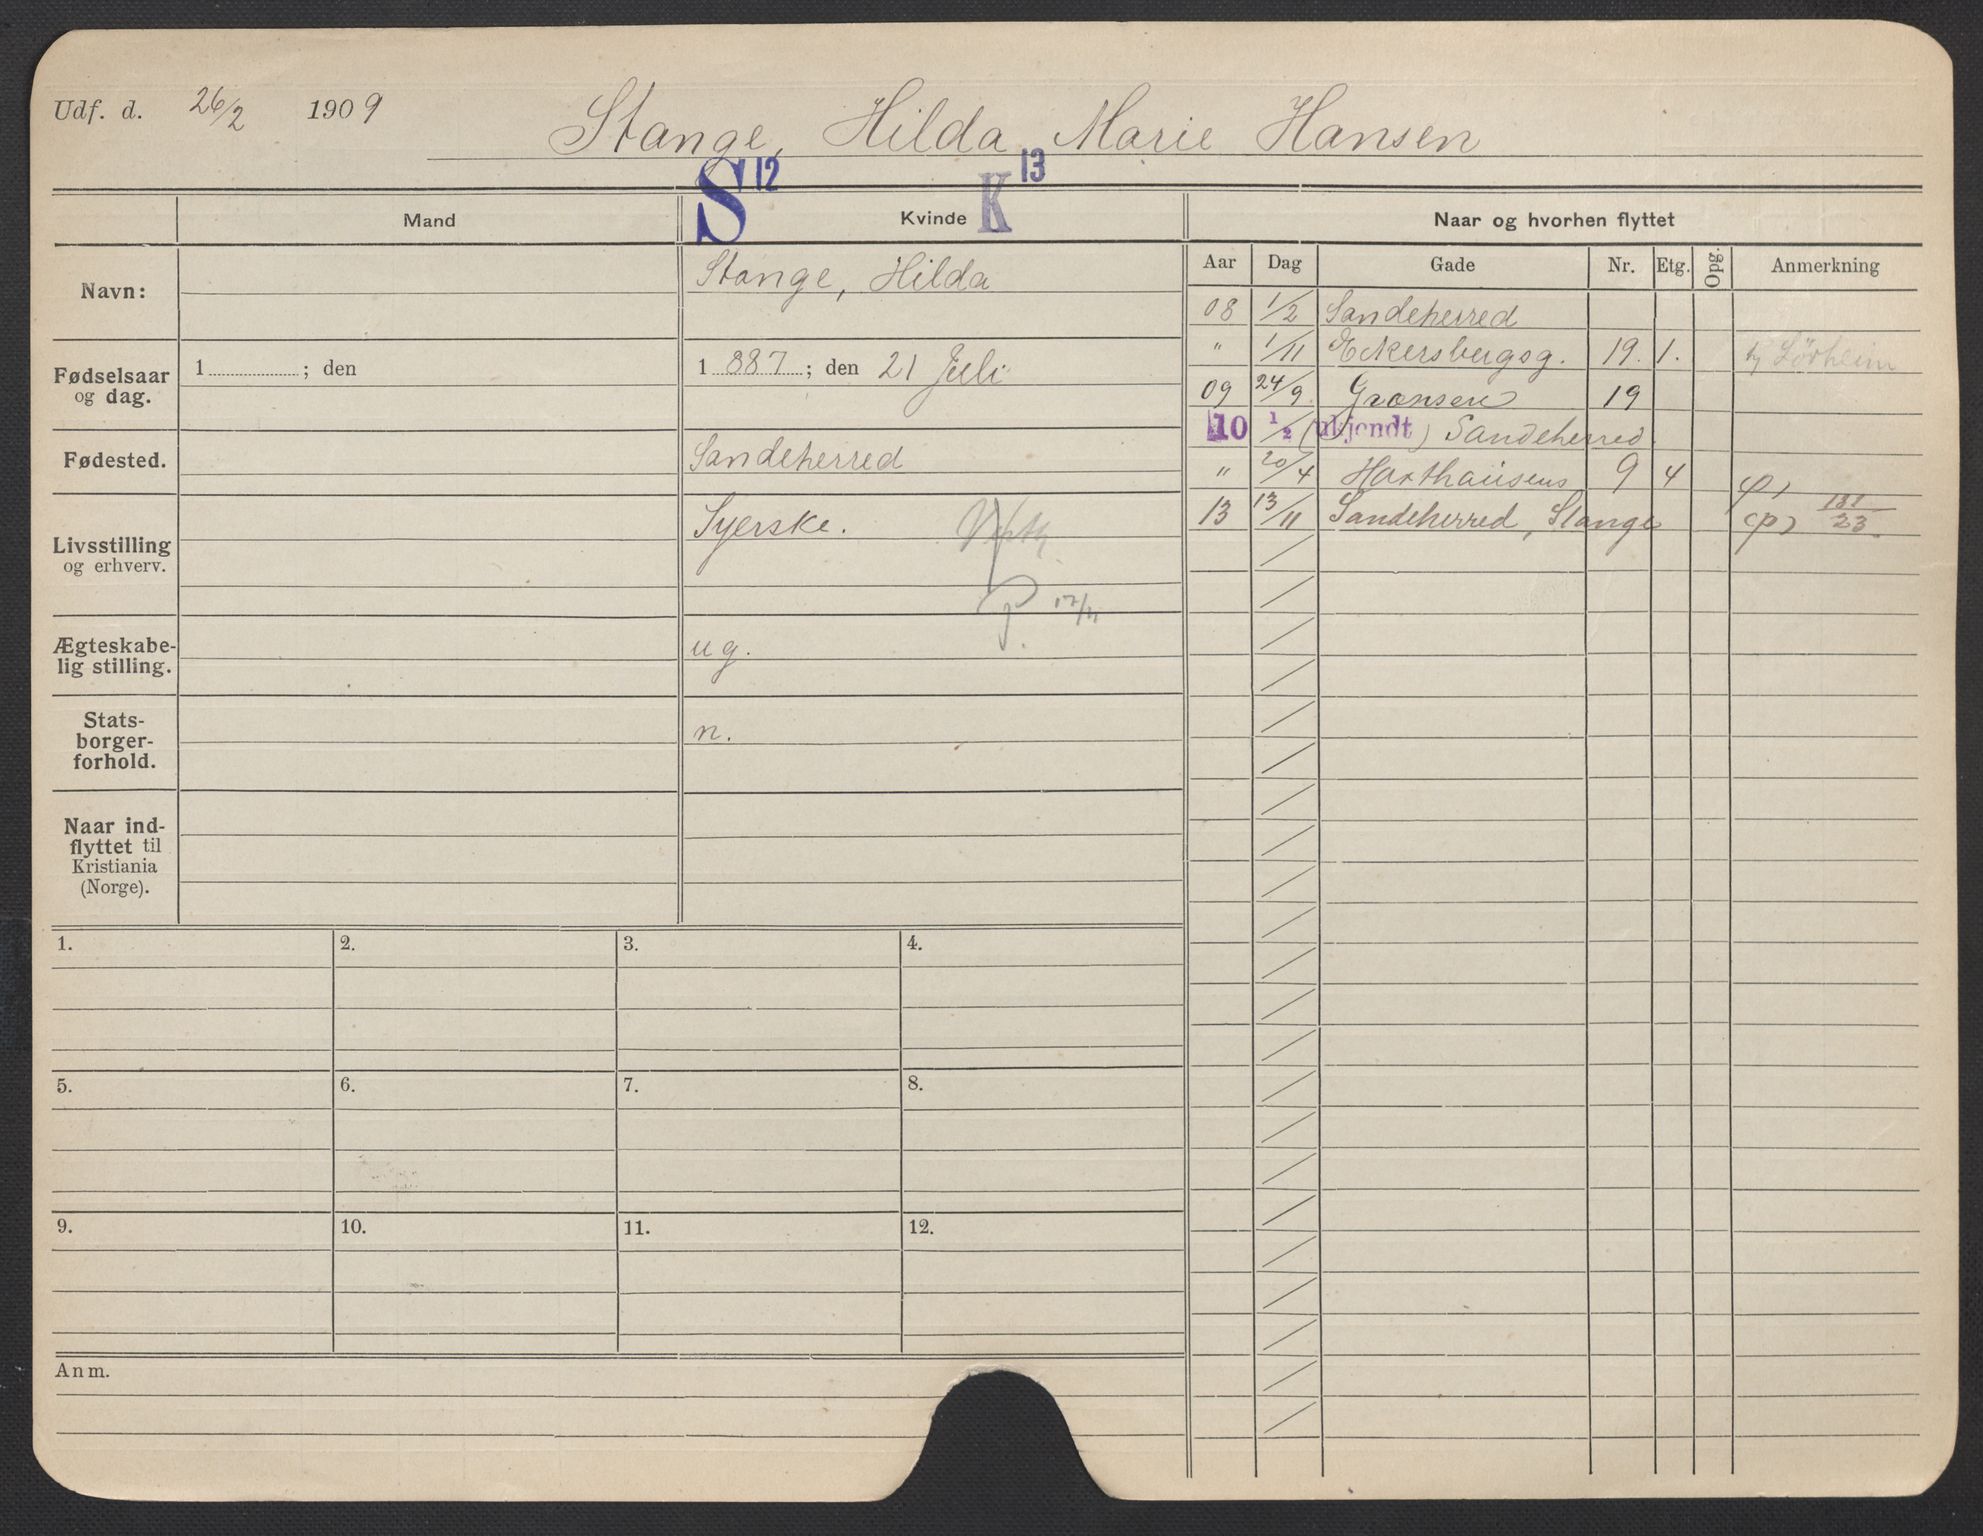 Udf. d. 26/2 1909
Stange, Hilda Marie Hansen
S 12 K 13
Mand Kvinde Naar og hvorhen flyttet
Aar Dag Gade Nr. Etg. Opg. Anmerkning
Navn:
Stange, Hilda
Fødselsaar og dag.
1 ; den
1 887 ; den 21 Juli
Fødested.
Sandeherred
Livsstilling og erhverv.
Syerske.
17/11
Ægteskabe-
lig stilling.
ug.
Stats-
borger-
forhold.
n.
Naar ind-
flyttet til
Kristiania
(Norge).
08 1/2 Sandeherred
" 1/11 Eckersbergsg. 19. 1.
09 24/9 Grænsen 19
10 1/2 (ukjendt) Sandeherred.
" 20/4 Haxthausens 9 4
13 13/11 Sandeherred, Stange (p) 181/23.
1. 2. 3. 4.
5. 6. 7. 8.
9. 10. 11. 12.
Anm.